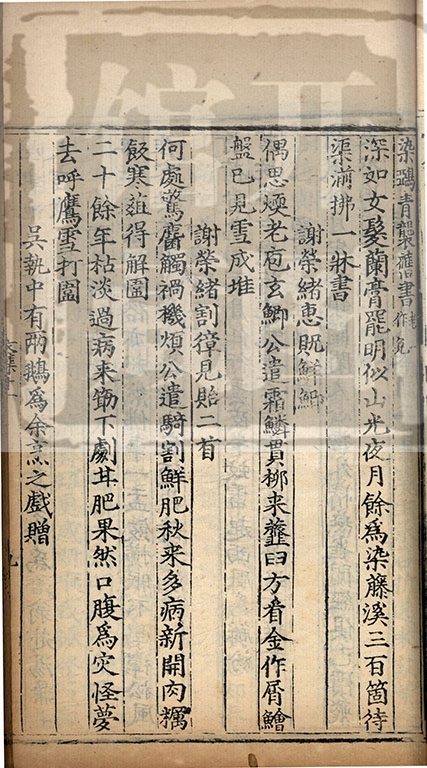 染鵶青襲舊書
深如女髮蘭膏罷明似山光夜月餘爲染藤溪三百箇待
渠湔拂一牀書
謝榮緒惠貺鮮鯽
偶思煗老庖玄鯽公遣霜鱗貫柳来虀臼方看金作屑鱠
盤已見雪成堆
謝榮緒割獐見貽二首
何處驚麏觸禍機煩公遣騎割鮮肥秋来多病新開肉糲
飯寒葅得解圍
二十餘年枯淡過病来筯下劇甘肥果然口腹爲灾怪夢
去呼鷹雪打圍
吳執中有兩鵝爲余烹之戲贈
九